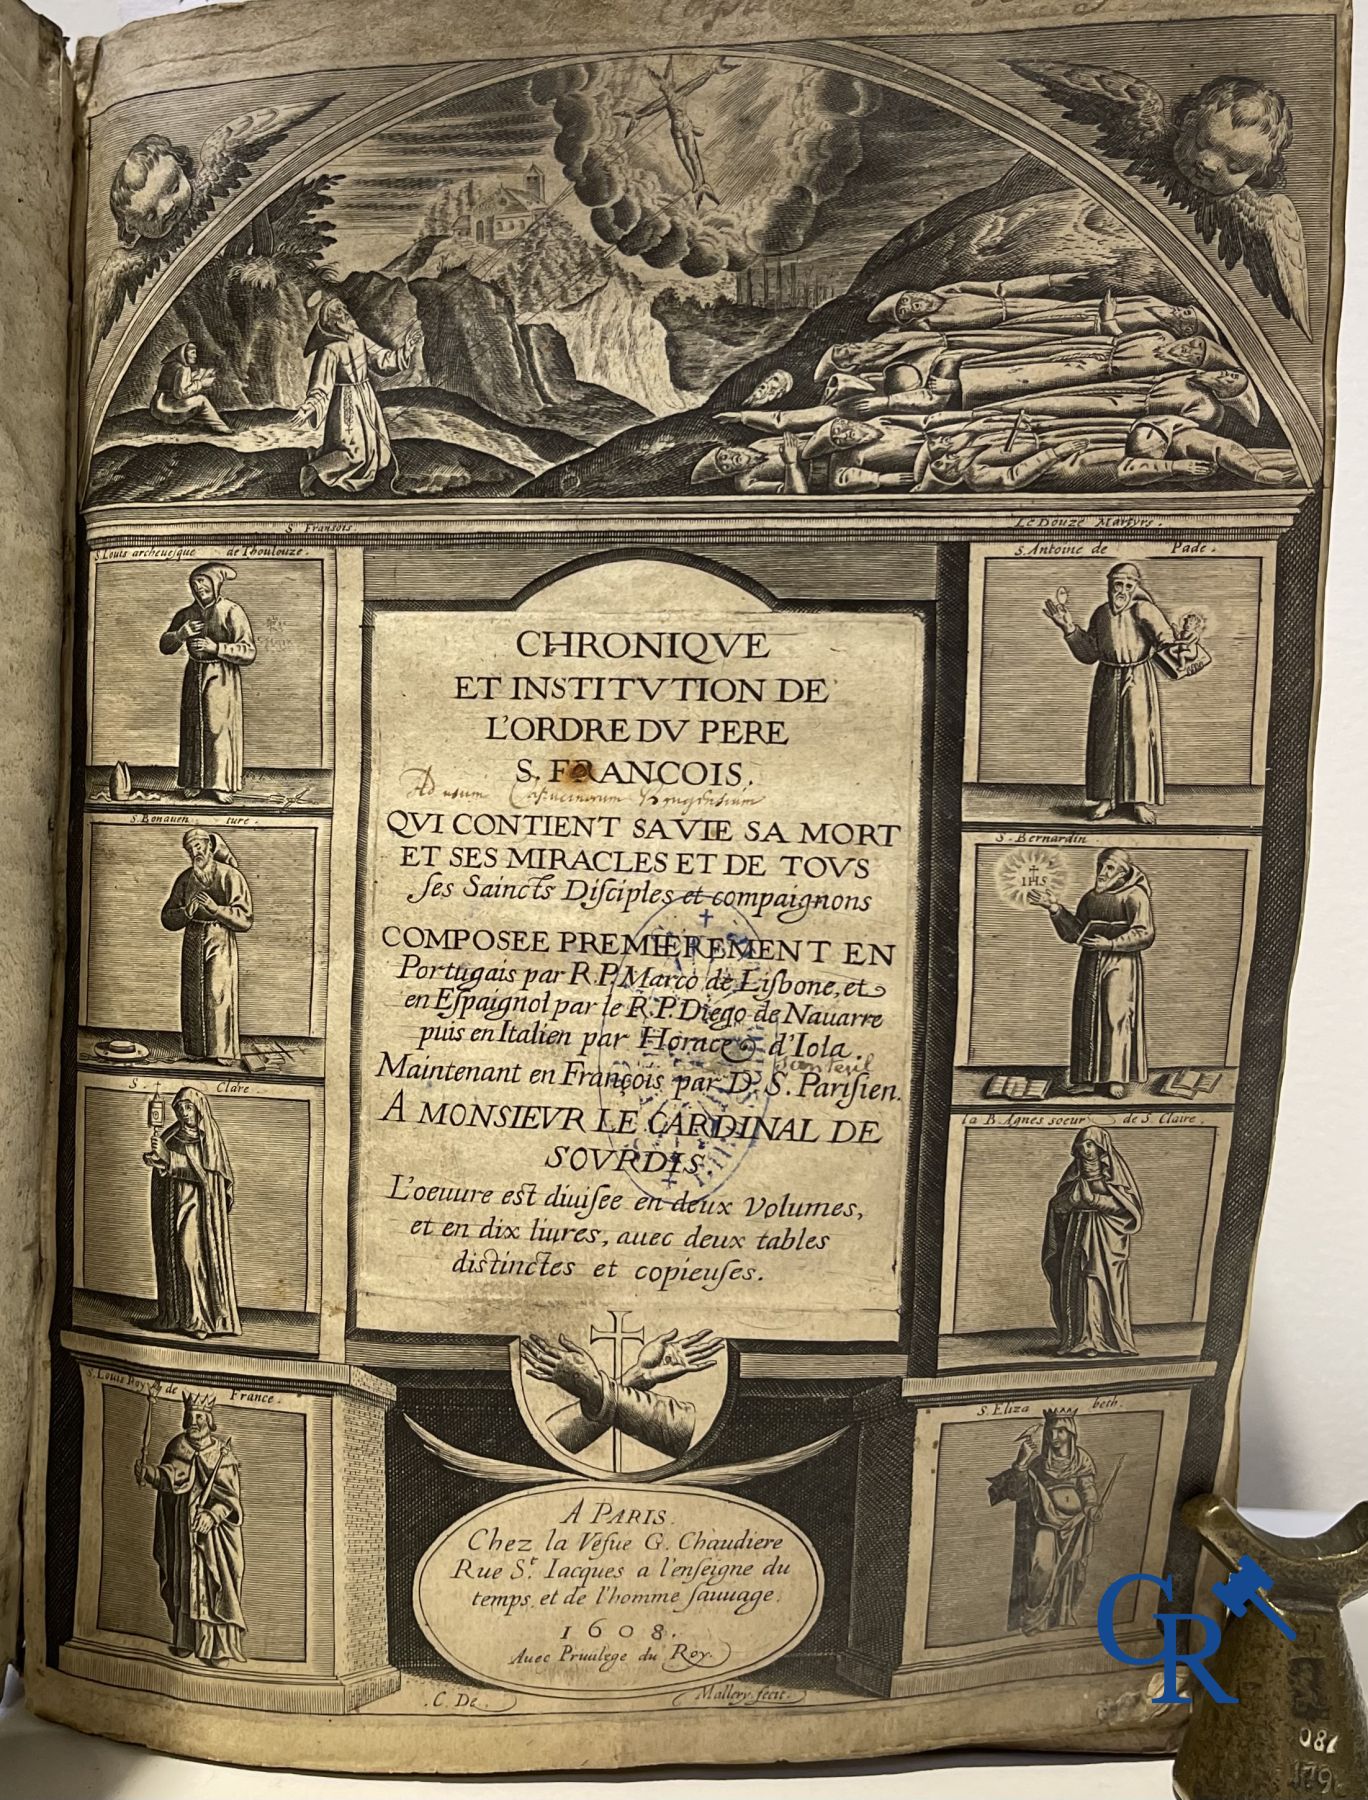 S. Fransois.
Le Douze Martyrs.
S. Louis archeuesque de Thoulouze.
S. Antoine de Pade.
CHRONIQVE
ET INSTITVTION DE
L'ORDRE DV PERE
S. FRANCOIS.
Ad usum Capucinorum Brugensium
QVI CONTIENT SA VIE SA MORT
ET SES MIRACLES ET DE TOVS
ſes Saincts Diſciples et compaignons
COMPOSEE PREMIEREMENT EN
Portugais par R.P. Marco de Liſbone, et
en Eſpaignol par le R.P. Diego de Nauarre
puis en Italien par Horace d'Iola.
Maintenant en François par D. S. Pariſien.
A MONSIEVR LE CARDINAL DE
SOVRDIS
L'oeuure est diuiſee en deux Volumes,
et en dix liures, auec deux tables
distinctes et copieuſes.
S. Bonauen ture.
S. Bernardin.
IHS
S. Clare.
la B. Agnes soeur de S. Claire.
S. Louis Roy de France.
S. Eliza beth.
A PARIS.
Chez la Veſue G. Chaudiere
Rue St. Iacques a l'enſeigne du
temps, et de l'homme ſauuage.
1608.
Auec Priuilege du Roy.
C. De Mallery fecit.
GR